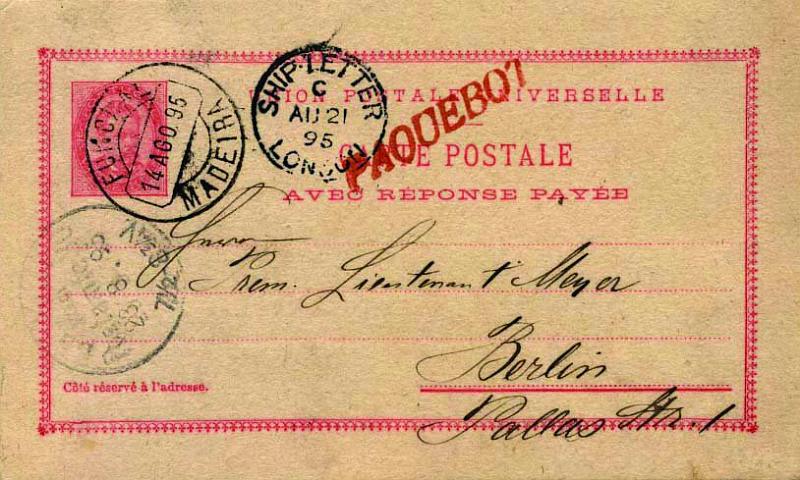 FUNCHAL
14 AGO 95
MADEIRA
SHIP-LETTER
C
AU 21
95
LONDON
PAQUEBOT
UNION POSTALE UNIVERSELLE
CARTE POSTALE
AVEC RÉPONSE PAYÉE
Herrn
Prem. Lieutenant Meyer
Berlin
Pallas Str. 1
Côté réservé à l'adresse.